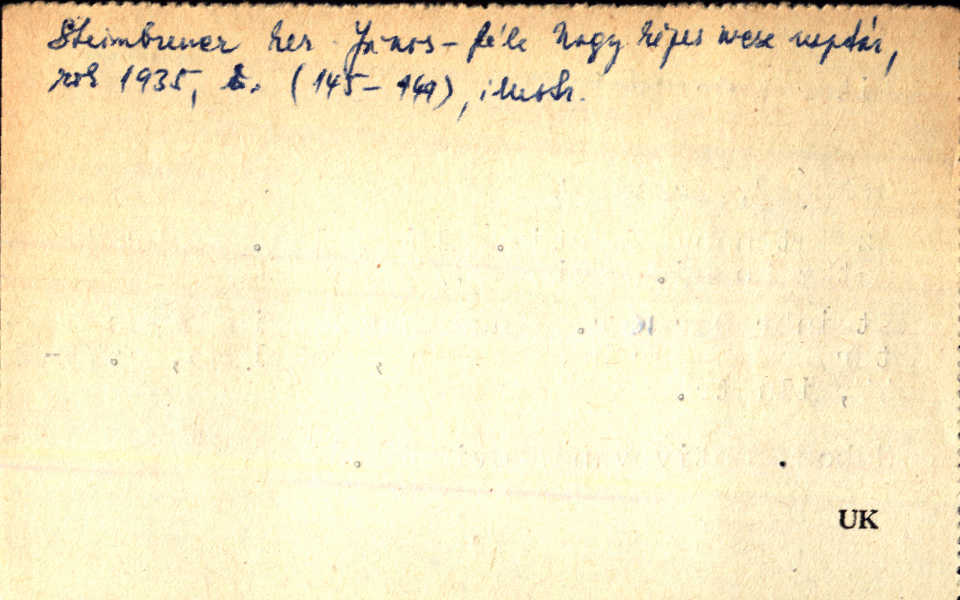 Steinbrener Ker. János-féle Nagy képes mese naptár,
rok 1935, s. (145-149), ilustr.
UK